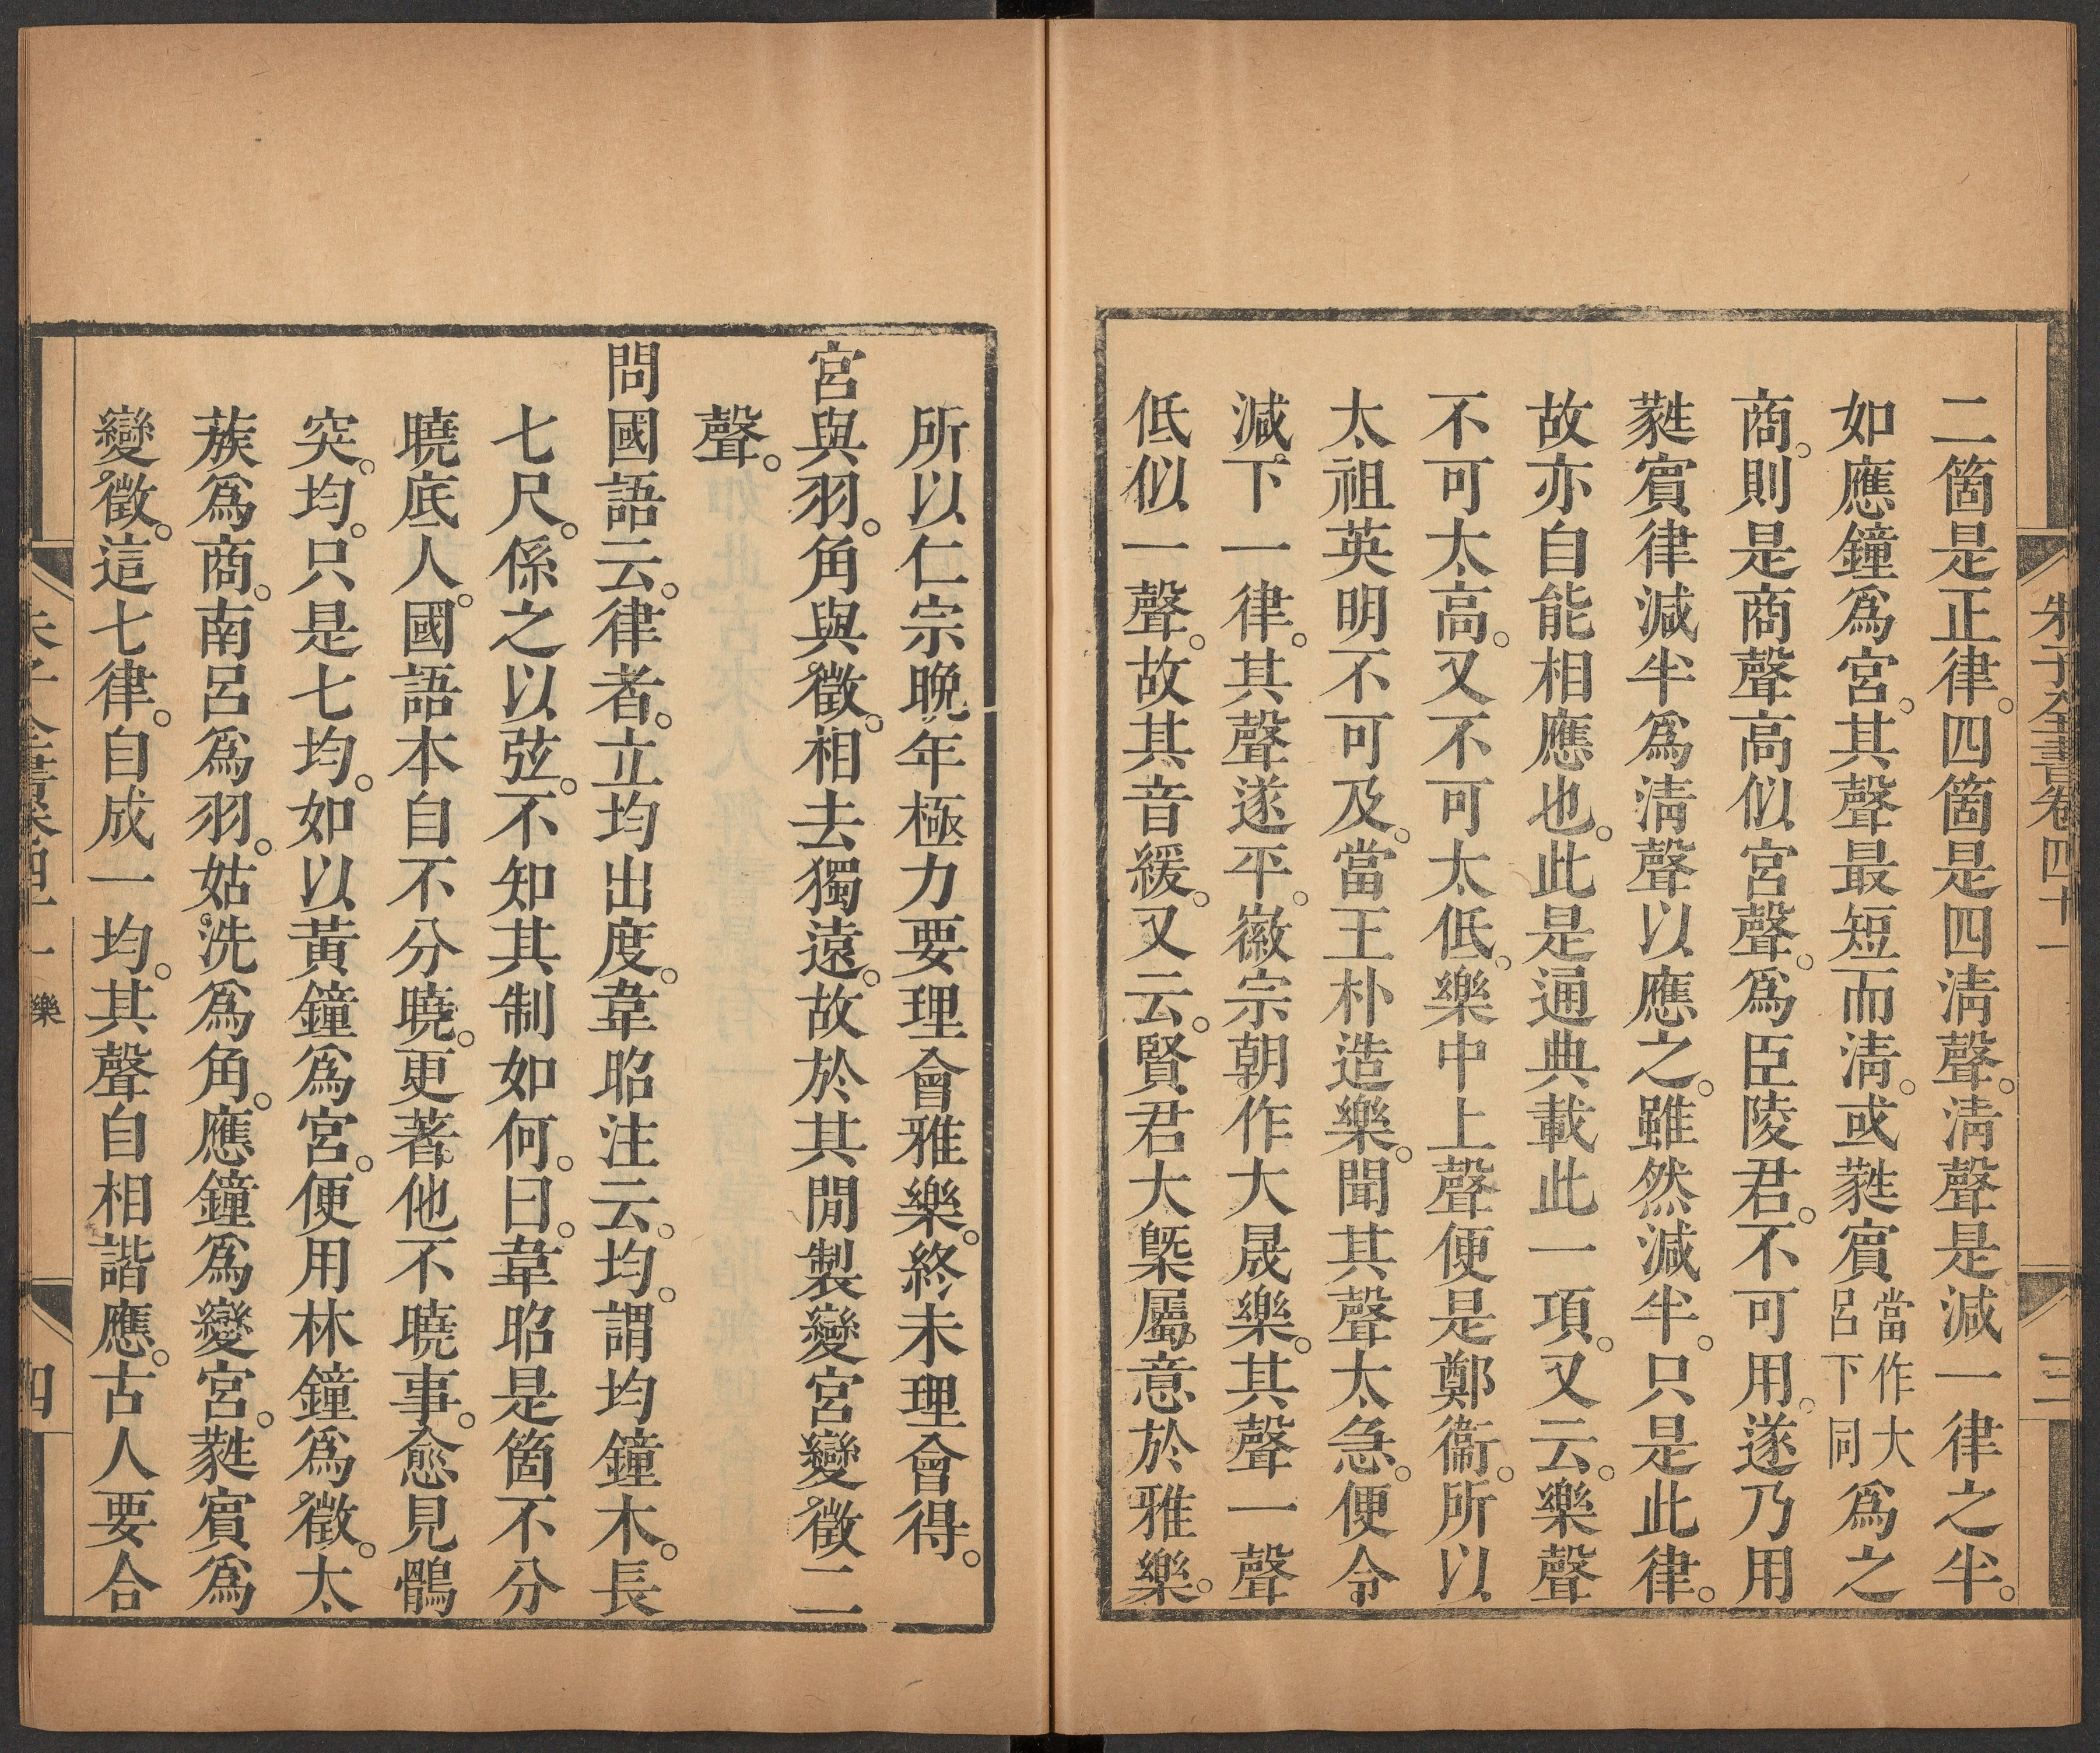 朱子全書卷四十一
三
二箇是正律。四箇是四淸聲。淸聲是減一律之半。
如應鐘爲宮。其聲最短而淸。或蕤賓當作大呂下同爲之
商。則是商聲高似宮聲。爲臣陵君。不可用。遂乃用
蕤賓律減半爲淸聲以應之。雖然減半。只是此律。
故亦自能相應也。此是通典載此一項。又云。樂聲
不可太高。又不可太低。樂中上聲便是鄭衞。所以
太祖英明不可及。當王朴造樂。聞其聲太急。便令
減下一律。其聲遂平。徽宗朝作大晟樂。其聲一聲
低似一聲。故其音緩。又云。賢君大槩屬意於雅樂。
所以仁宗晚年極力要理會雅樂。終未理會得。
宮與羽。角與徵。相去獨遠。故於其閒製變宮變徵二
聲。
問國語云。律者。立均出度。韋昭注云。均。謂均鐘木。長
七尺。係之以弦。不知其制如何。曰。韋昭是箇不分
曉底人。國語本自不分曉。更著他不曉事。愈見鶻
突。均。只是七均。如以黃鐘爲宮。便用林鐘爲徵。太
蔟爲商。南呂爲羽。姑洗爲角。應鐘爲變宮。蕤賓爲
變徵。這七律。自成一均。其聲自相諧應。古人要合
朱子全書卷四十一 樂
四